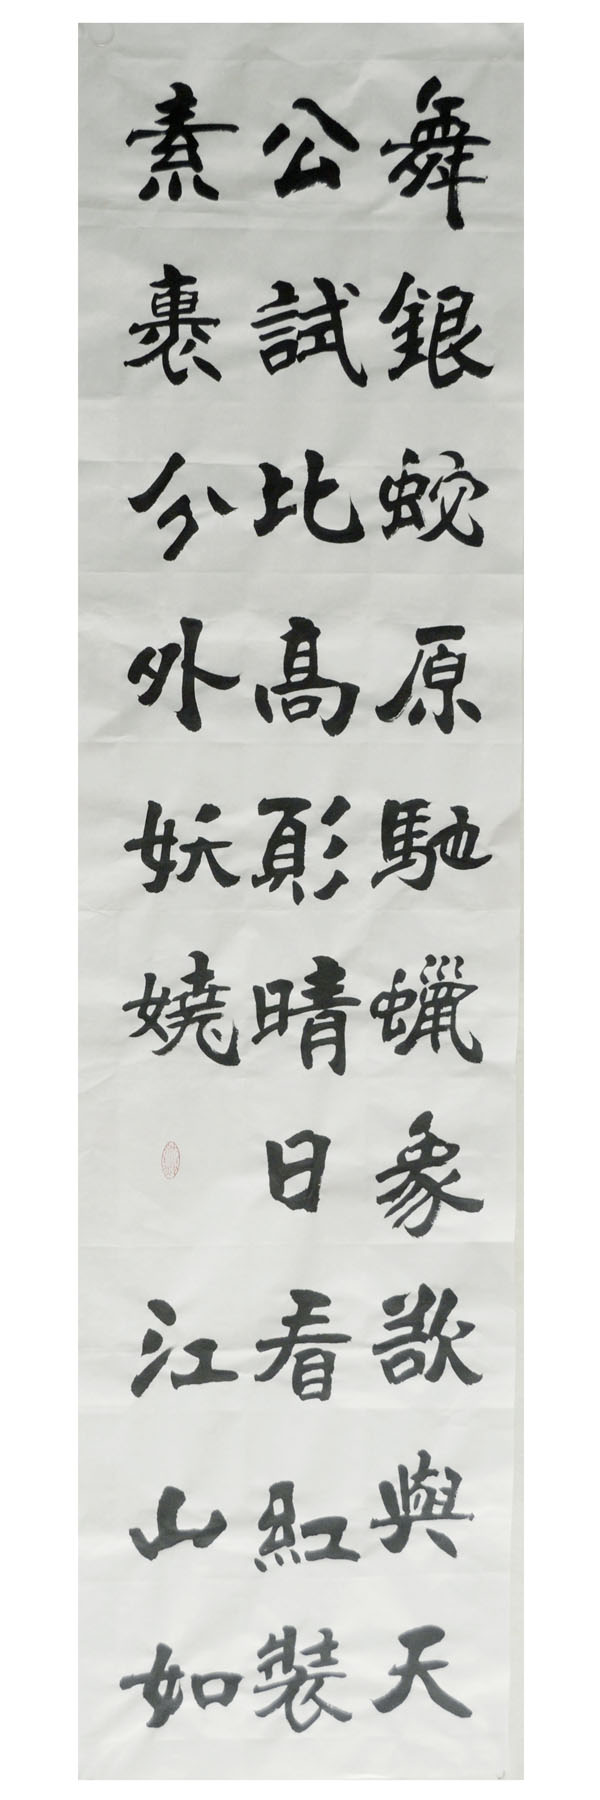 舞銀蛇原馳蠟象欲與天
公試比高彭晴日看紅裝
素裹分外妖嬈 江山如